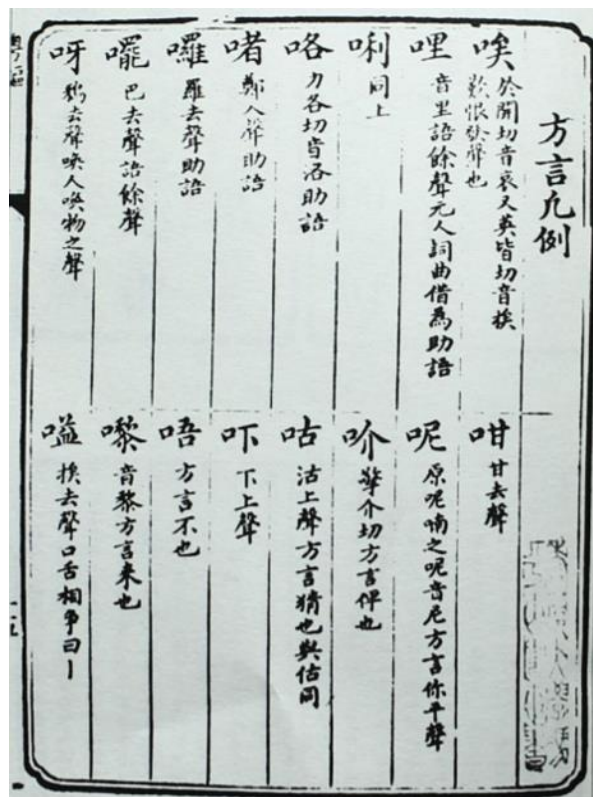 方言凡例
唉 於開切音哀又英皆切音挨
歎恨發聲也
哩 音里語餘聲元人詞曲借為助語
唎 同上
咯 力各切音洛助語
啫 鄭人聲助語
囉 羅去聲助語
巴去聲語餘聲
呀 鴉去聲喚人喚物之聲
咁 甘去聲
呢 原呢喃之呢音尼方言你平聲
吤 介切方言俾也
咕 沽上聲方言猜也與估同
吓 下上聲
唔 方言不也
嚟 音黎方言來也
嗌 挨去聲口舌相爭曰丨
粵謳